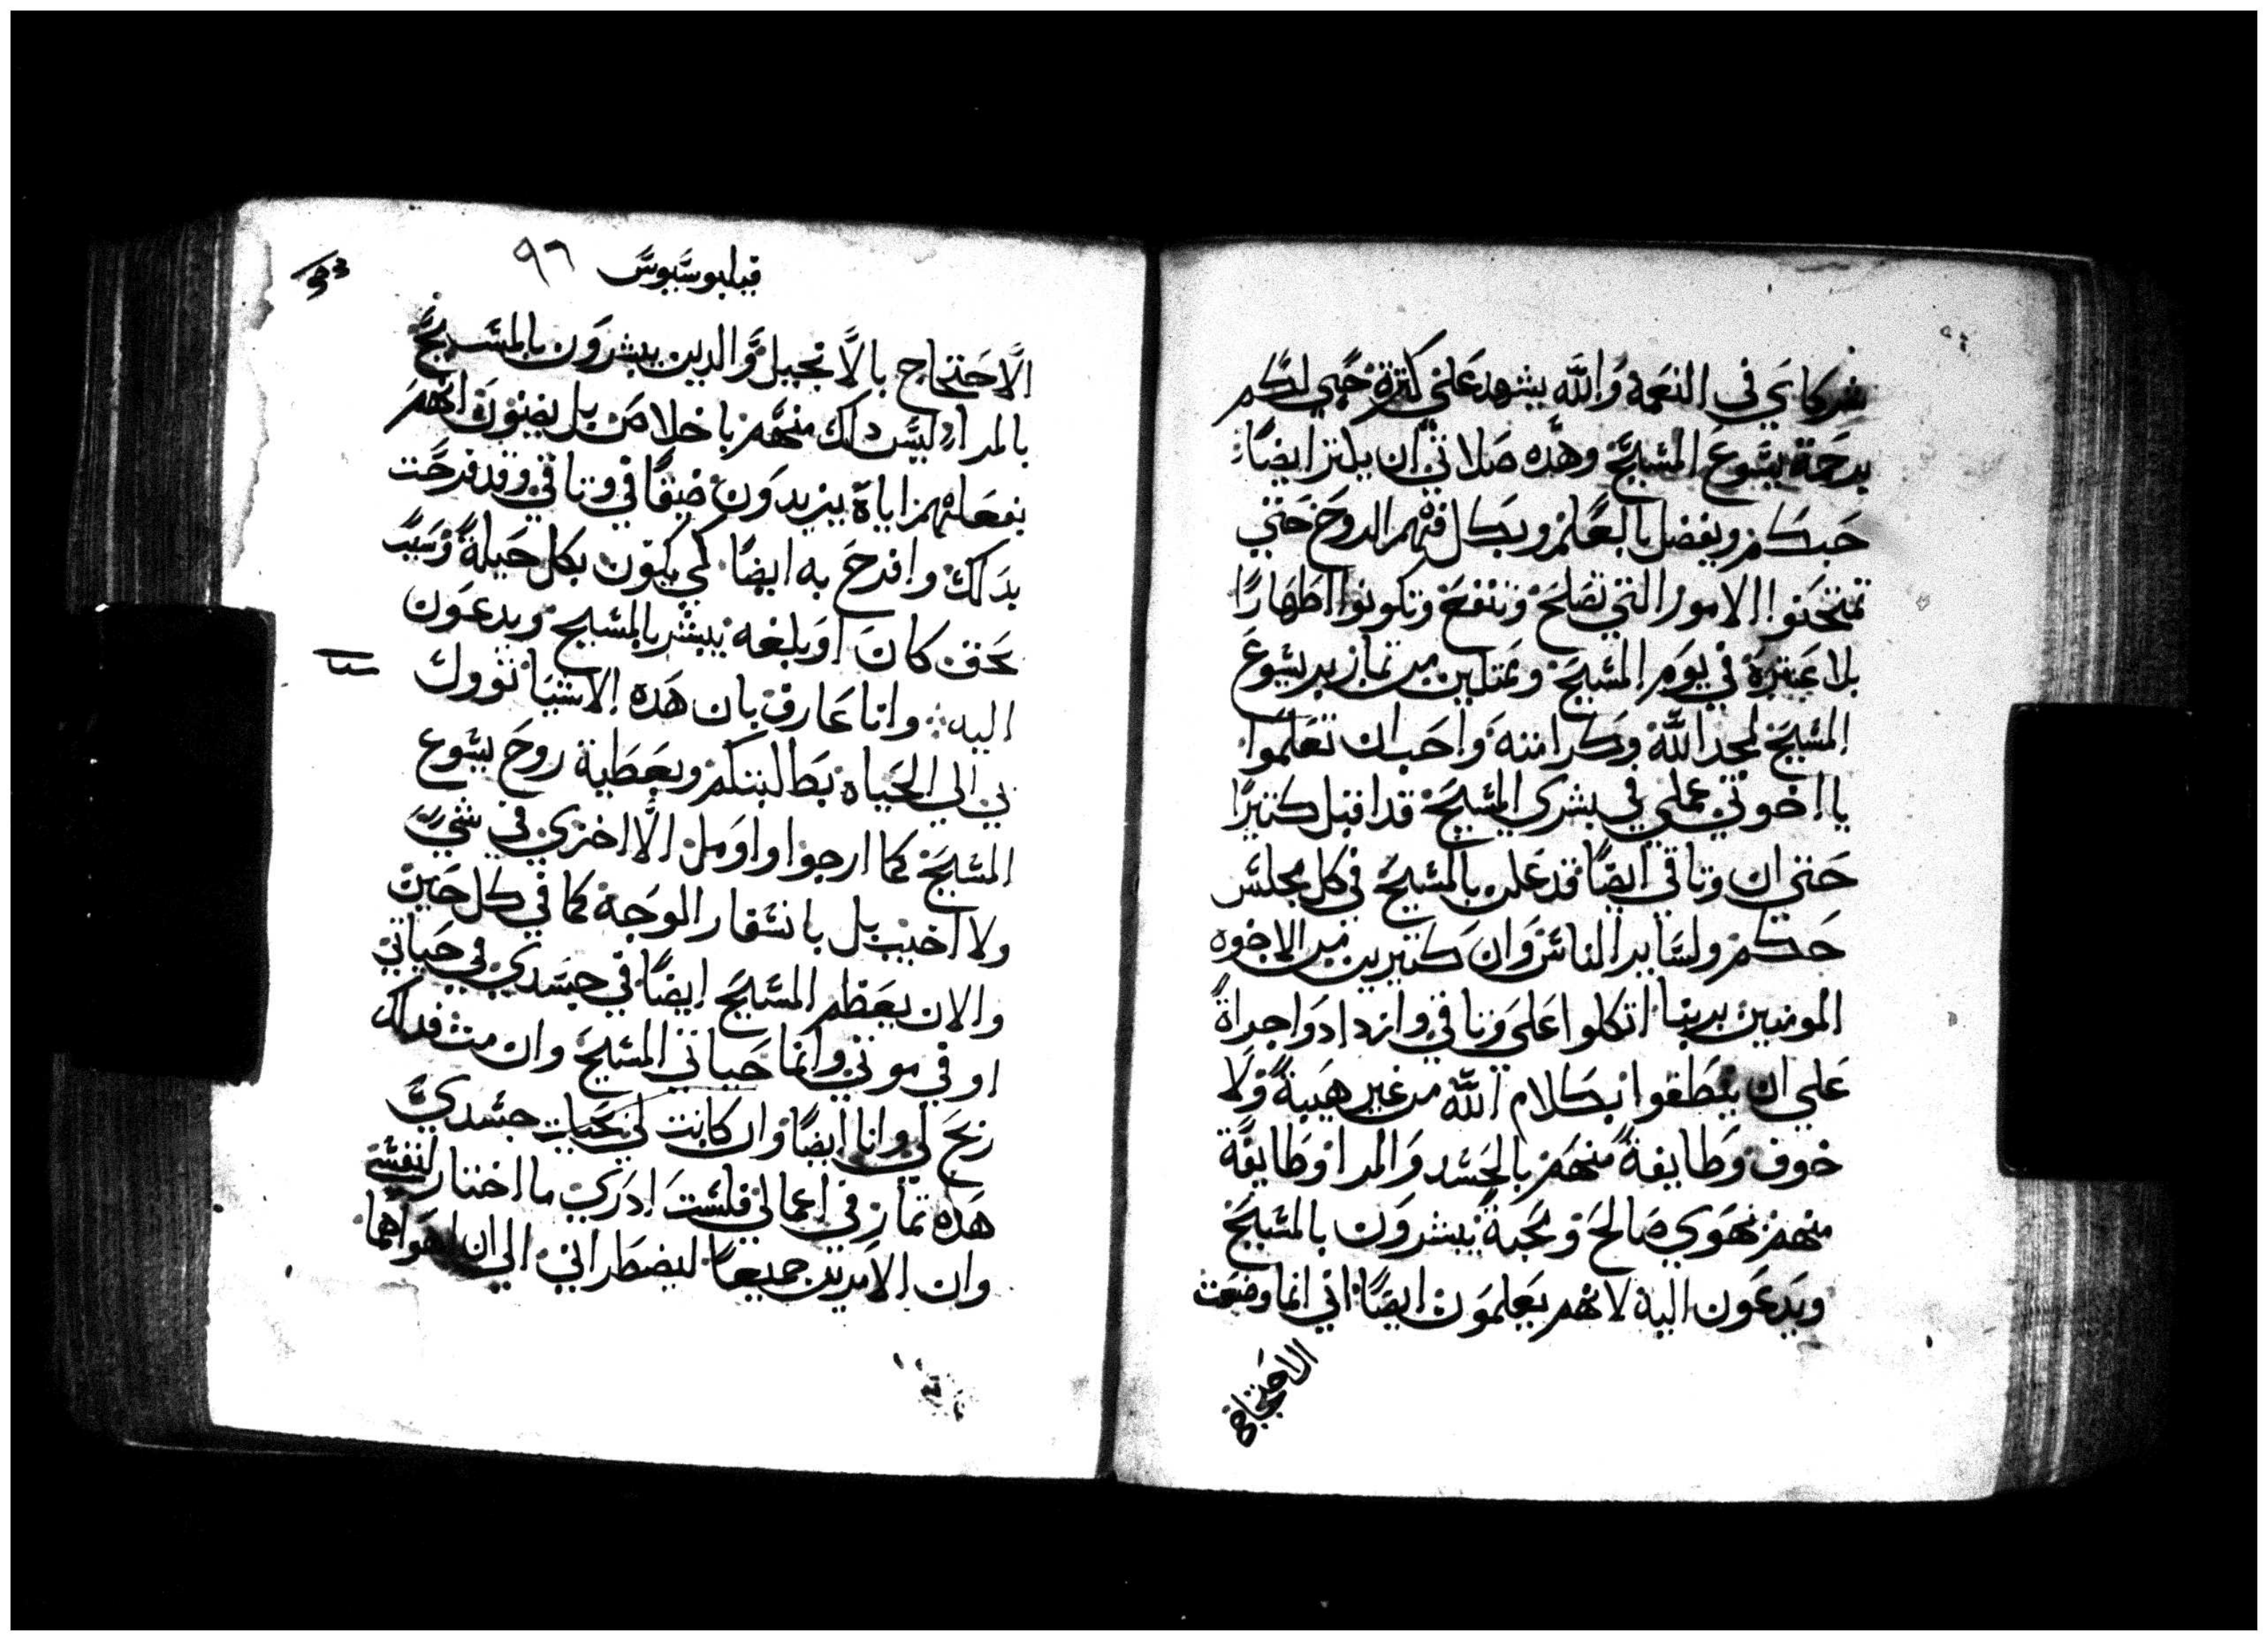 شركاي في النعمة والله يشهد علي كترة حبي لكم
برحمة يسوع المسيح وهده صلاتي ان يكتر ايضا
حبكم ويفضل بالعلم وبكل فهم الروح حتي
تمتحنوا الامور التي تصلح وتنفع وتكونوا اطهارا
بلا عترة في يوم المسيح وممتليين من تمار بر يسوع
المسيح لمجد الله وكرامته واحب ان تعلموا
يا اخوتي عملي في بشري المسيح قد اقبل كتيرا
حتي ان وتاقي ايضا قد علن بالمسيح في كل مجلس
حكم ولساير الناس وان كتيرين من الاخوه
المومنين بربنا اتكلوا علي وتاقي وازدادوا جراة
علي ان ينطقوا بكلام الله من غير هيبة ولا
خوف وطايفة منهم بالحسد والمرا وطايفة
منهم بهوي صالح ومحبة يبشرون بالمسيح
ويدعون اليه لانهم يعلمون ايضا اني انما وضعت
الاحتجاج
فيلبوسيوس ٩٦
93
الاحتجاج بالانجيل والدين يبشرون بالمسيح
بالمرا ليس دلك منهم باخلاص بل يضنون انهم
بفعلتهم اياة يزيدون ضيقا في وتاقي وقد فرحت
بدلك وافرح به ايضا كي يكون بكل حيلة وسبب
بحق كان او بلغه يبشر بالمسيح ويدعون
اليه وانا عارف بان هده الاشيا توول
بي الي الحياه بطالبتكم وبعطية روح يسوع
المسيح كما ارجوا واومل الا اخزي في شي
ولا اخيب بل باسفار الوجه كما في كل حين
والان يعظم المسيح ايضا في جسدي في حياتي
او في موتي وانما حياتي المسيح وان مت فدلك
ربح لي وانا ايضا وان كانت لي بحيات جسدي
هده تمار في اعمالي فلست ادري ما اختار لنفسي
وان الامرين جميعا ليضطراني الي ان اهواهما